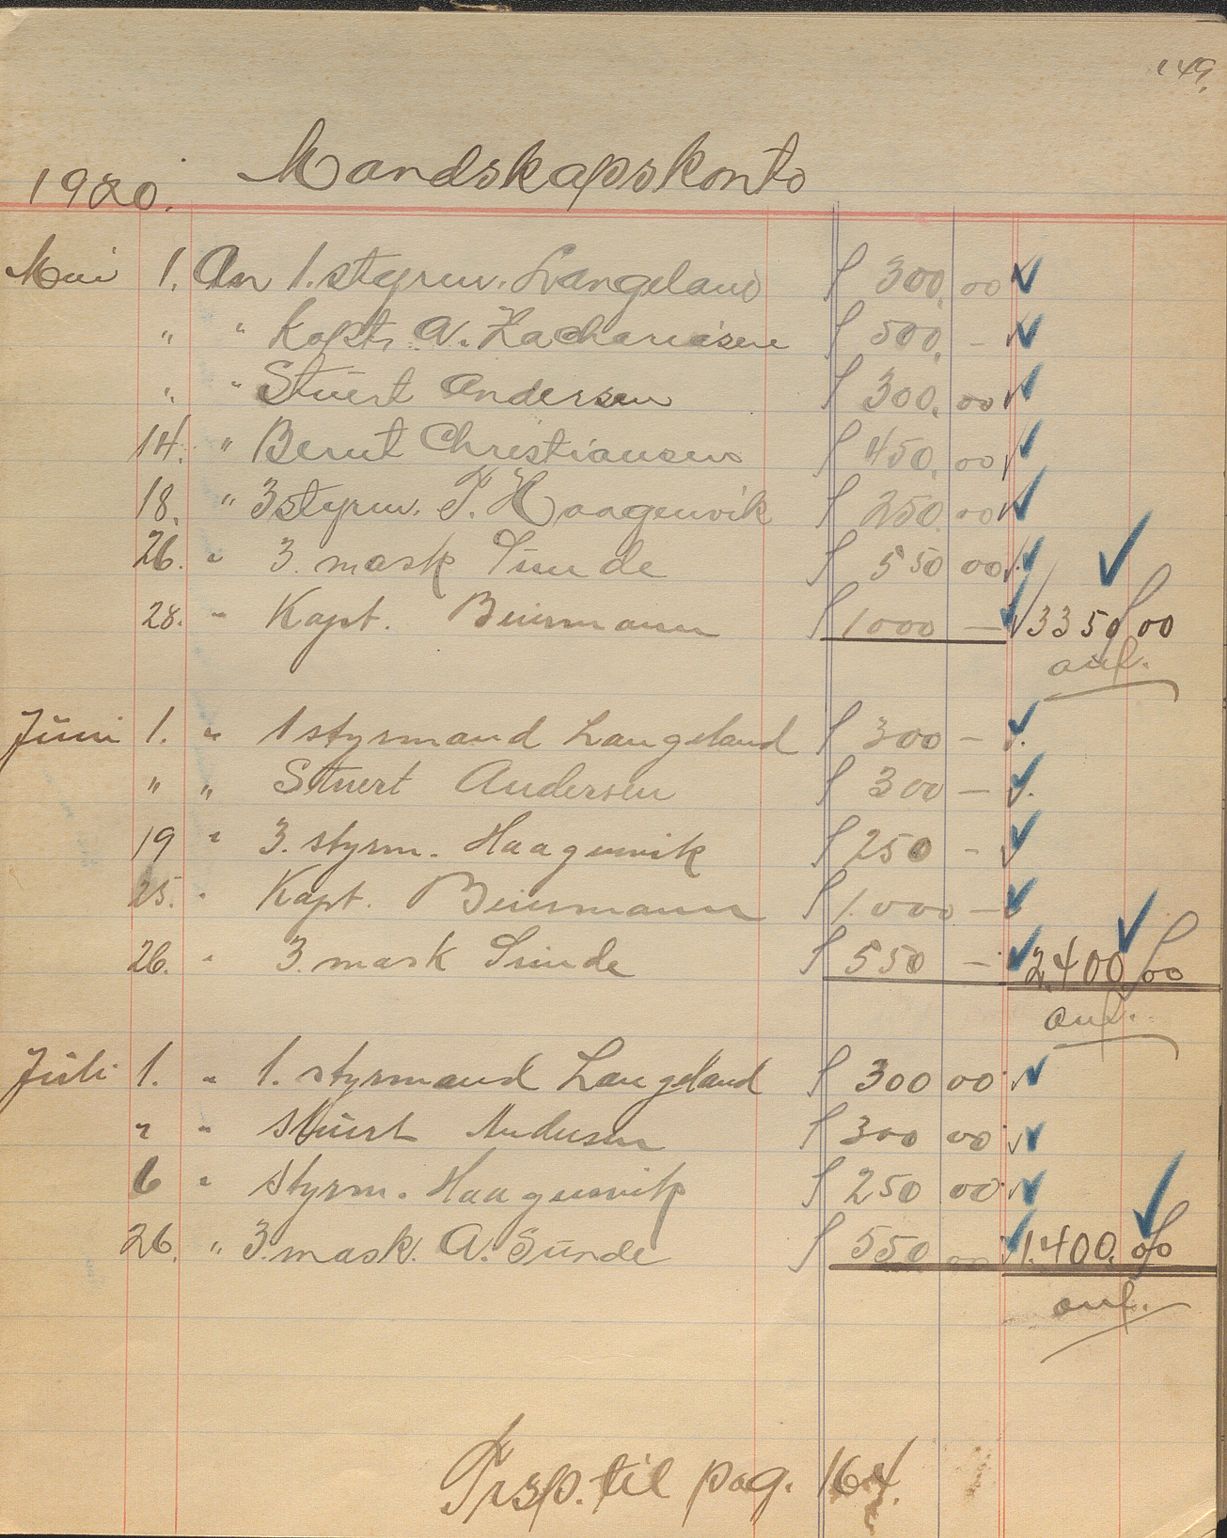 149.
1920. Mandskapskonto
Mai 1. An 1. styrm. Langeland 300.00
" " Kapt. A. Zachariasen 500. -
" " Stuert Andersen 300.00
14. " Bernt Christiansen 450.00
18. " 3 styrm. T. Haagenvik 250.00
26. " 3. mask Sunde 550 00
28. " Kapt. Beiermann 1000 - 3350 00
anf.
Juni 1. " 1 styrmand Langeland 300 -
" " Stuert Andersen 300 -
19 " 3. styrm. Haagenvik 250 -
25. " Kapt. Beiermann 1.000 -
26. " 3. mask Sunde 550 - 2.400 00
anf.
Juli 1. " 1. styrmand Langeland 300 00
" " Stuert Andersen 300 00
6 " Styrm. Haagenvik 250 00
26. " 3. mask. A. Sunde 550 00 1.400.00
anf.
Trsp. til pag. 164.